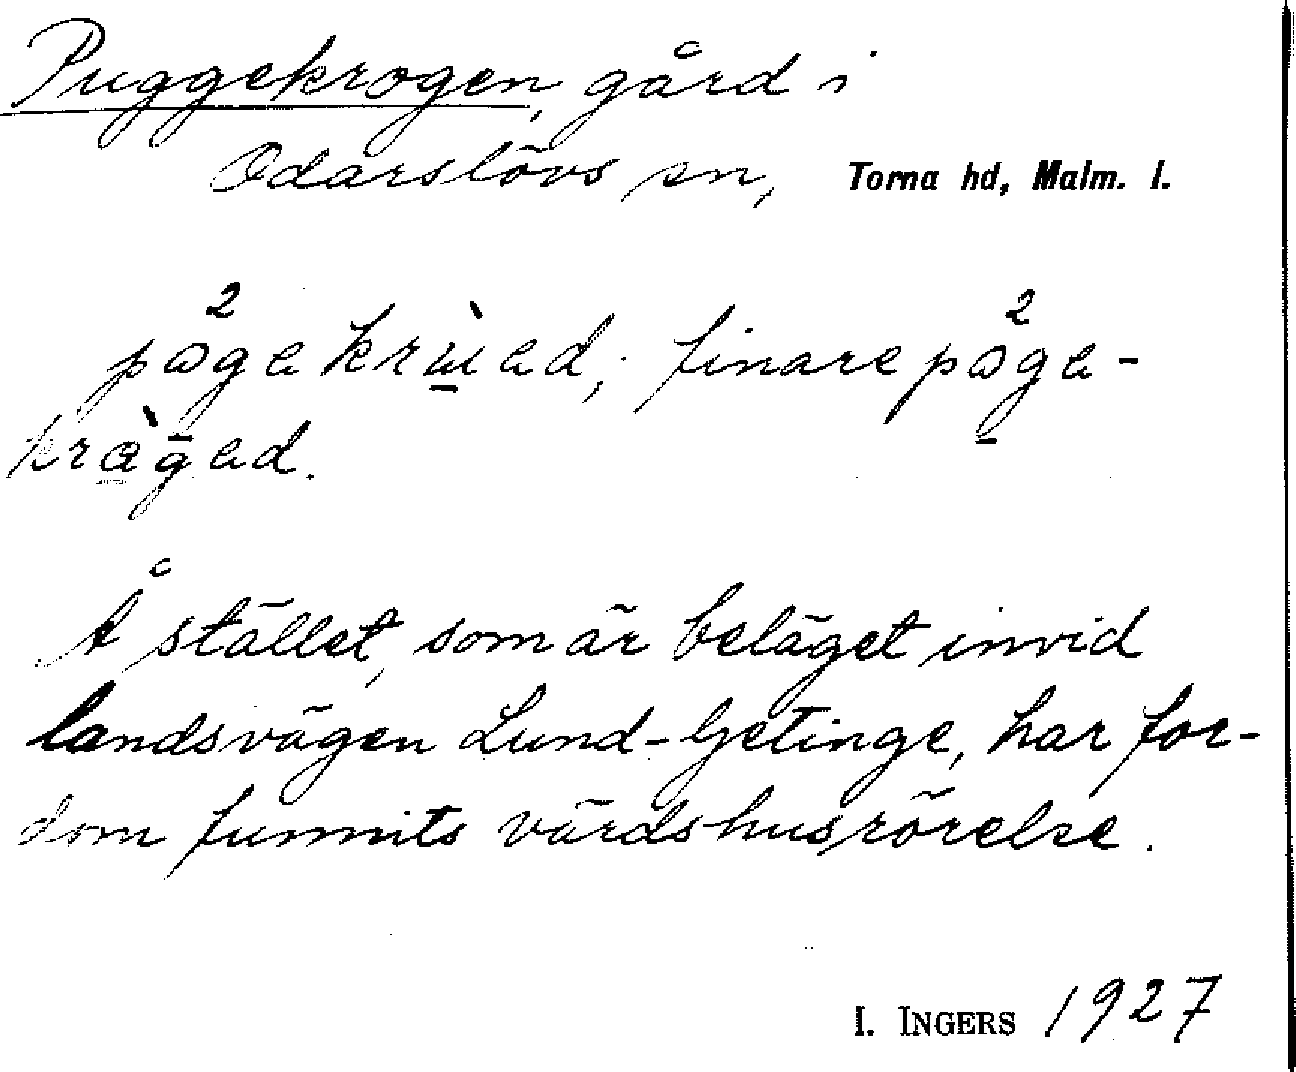 Puggekrogen, gård i
Odarslövs sn, Torna hd, Malm. l.
pøgekrɯ̀ed; finare pøge-
kràged.
Å stället, som är beläget invid
landsvägen Lund-Getinge, har for-
dom funnits värdshusrörelse.
I. INGERS 1927